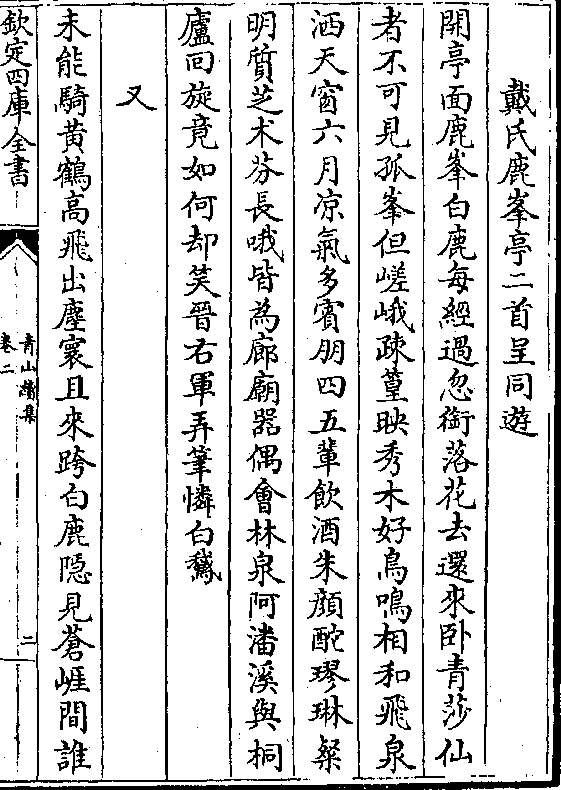 戴氏鹿峯亭二首呈同遊
開亭面鹿峯白鹿每經過忽銜落花去還來卧青莎仙
者不可見孤峯但嵯峨疎篁映秀木好鳥鳴相和飛泉
洒天窗六月凉氣多賓朋四五輩飲酒朱顔酡璆琳粲
明質芝术芬長哦皆為廊廟器偶會林泉阿潘溪與桐
廬回旋竟如何却笑晉右軍弄筆憐白鵞
又
未能騎黄鶴高飛出塵寰且來跨白鹿隠見蒼崕間誰
欽定四庫全書
青山續集
卷二
二